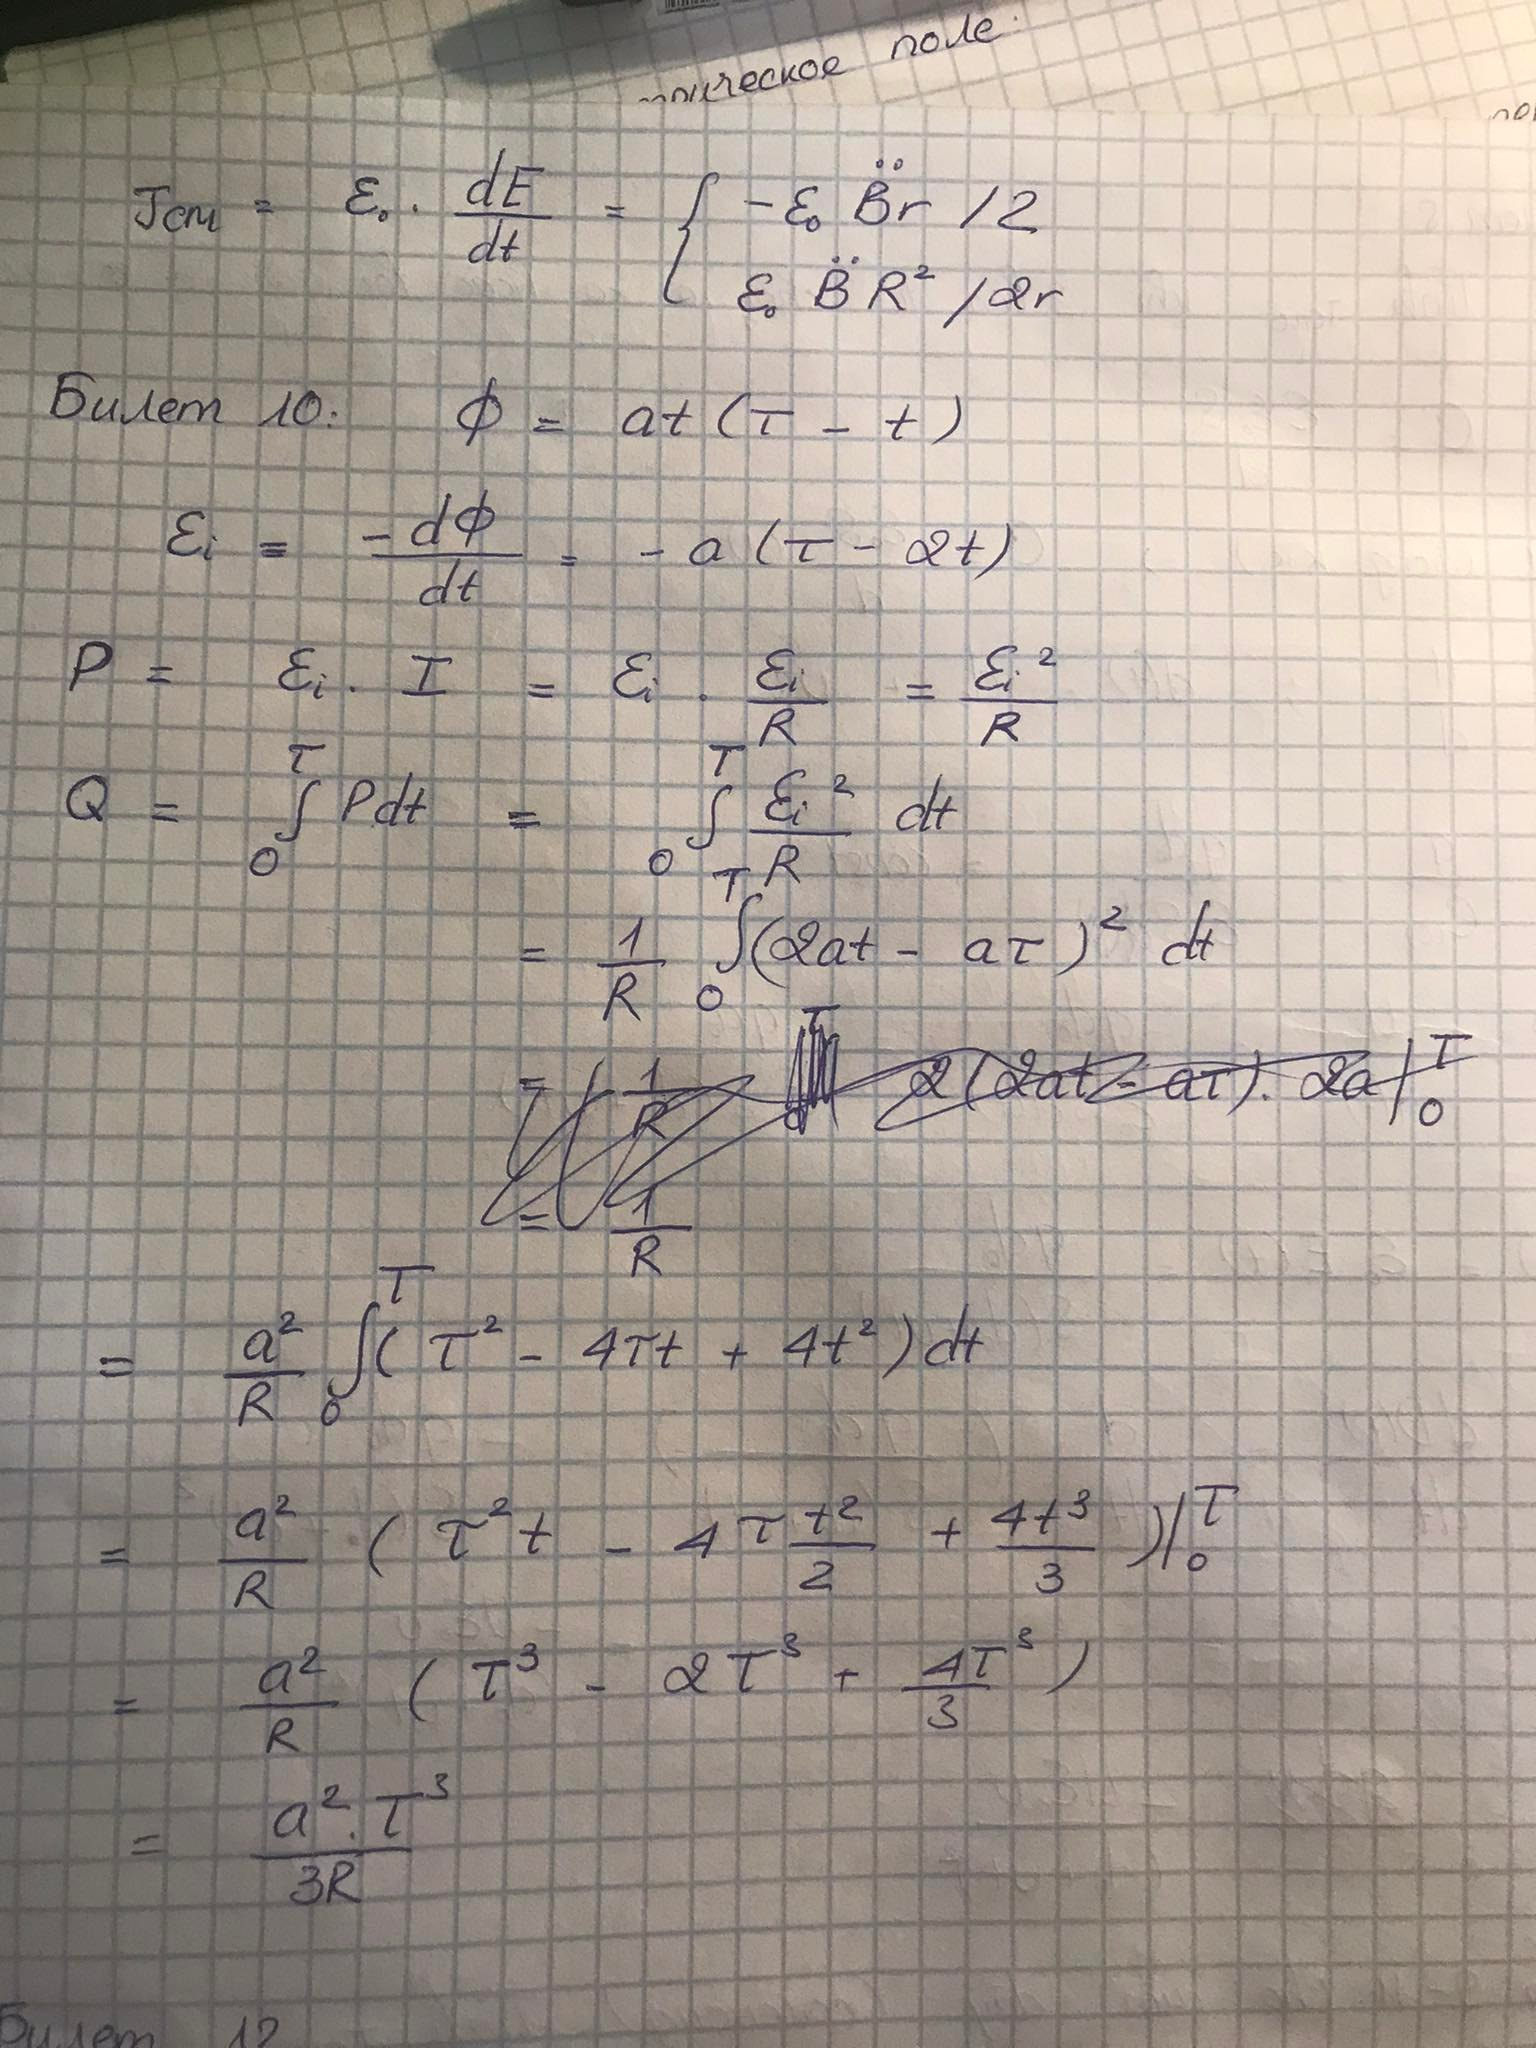 поле.
Jсм = ε₀ · dE/dt = { -ε₀ B̈r /2
ε₀ B̈ R² /2r
Билет 10: Φ = at (τ - t)
εi = -dΦ/dt = - a (τ - 2t)
P = εi · I = εi · εi/R = εi²/R
Q = ∫₀^τ Pdt = ∫₀^τ εi²/R dt
= 1/R ∫₀^τ (2at - aτ)² dt
= 1/R 2(2at - aτ) · 2a |₀^τ
= 1/R
= a²/R ∫₀^τ (τ² - 4τt + 4t²) dt
= a²/R (τ²t - 4τ t²/2 + 4t³/3)|₀^τ
= a²/R (τ³ - 2τ³ + 4τ³/3)
= a²·τ³/3R
Билет 12